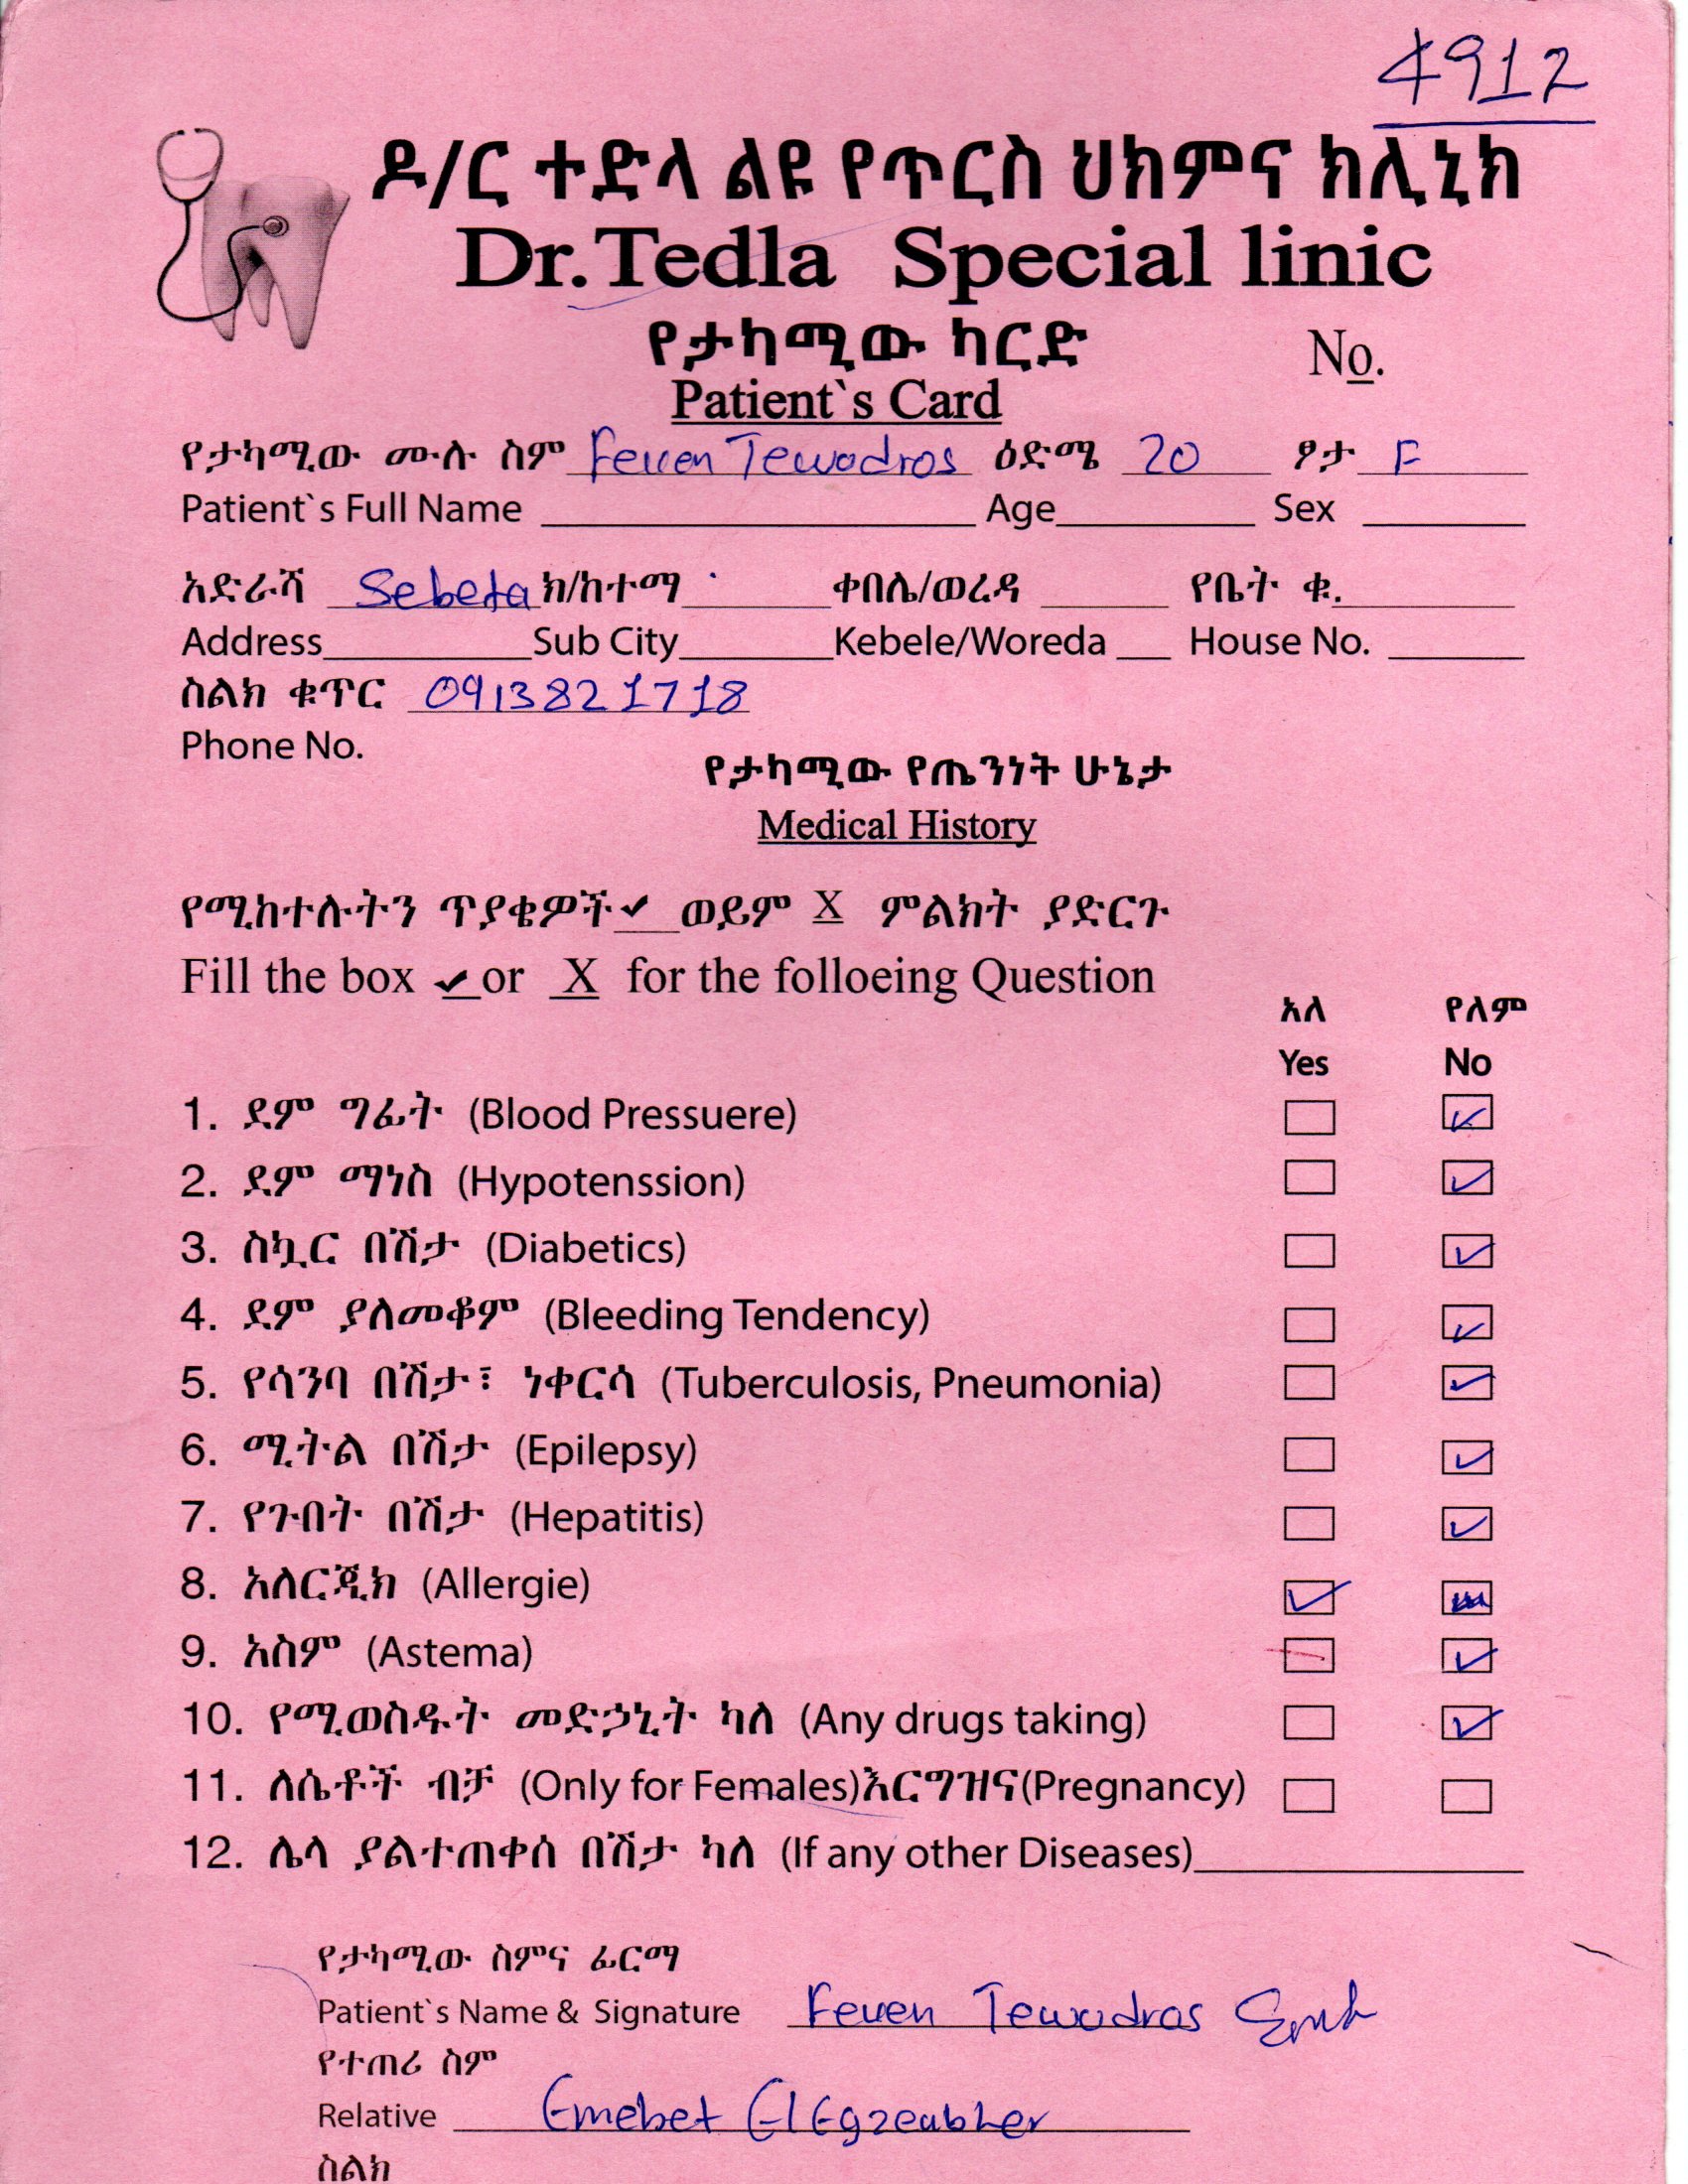 4912
ዶ/ር ተድላ ልዩ የጥርስ ህክምና ክሊኒክ
Dr.Tedla Special linic
የታካሚው ካርድ
No.
Patient`s Card
የታካሚው ሙሉ ስም Feven Tewodros ዕድሜ 20 ፆታ F
Patient`s Full Name Age Sex
አድራሻ Sebeta ክ/ከተማ ቀበሌ/ወረዳ የቤት ቁ.
Address Sub City Kebele/Woreda House No.
ስልክ ቁጥር 0913821718
Phone No.
የታካሚው የጤንነት ሁኔታ
Medical History
የሚከተሉትን ጥያቄዎች ✔ ወይም X ምልክት ያድርጉ
Fill the box ✔ or X for the folloeing Question
አለ የለም
Yes No
1. ደም ግፊት (Blood Pressuere)
2. ደም ማነስ (Hypotenssion)
3. ስኳር በሽታ (Diabetics)
4. ደም ያለመቆም (Bleeding Tendency)
5. የሳንባ በሽታ፣ ነቀርሳ (Tuberculosis, Pneumonia)
6. ሚትል በሽታ (Epilepsy)
7. የጉበት በሽታ (Hepatitis)
8. አለርጂክ (Allergie)
9. አስም (Astema)
10. የሚወስዱት መድኃኒት ካለ (Any drugs taking)
11. ለሴቶች ብቻ (Only for Females)እርግዝና(Pregnancy)
12. ሌላ ያልተጠቀሰ በሽታ ካለ (If any other Diseases)
የታካሚው ስምና ፊርማ
Patient`s Name & Signature Feven Tewodros
የተጠሪ ስም
Relative Emebet G/Egzeabher
ስልክ